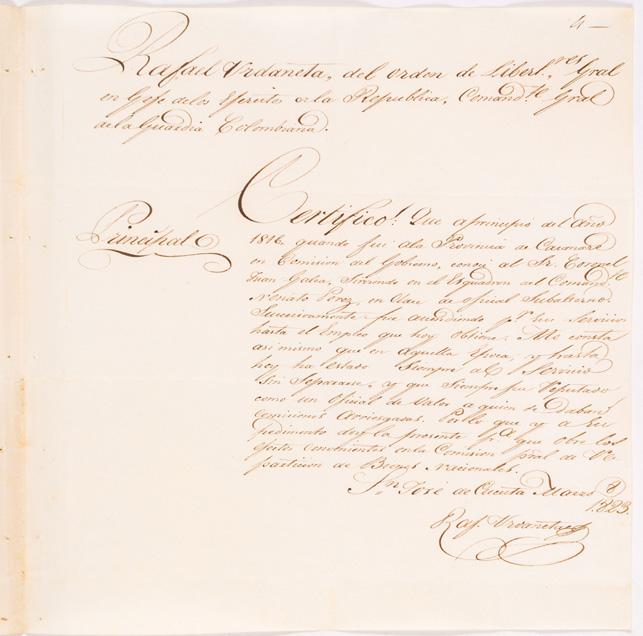 4 —
Rafael Urdañeta, del orden de Libert.res Gral
en Gefe de los Egércitos de la Republica, Comand.te Gral
de la Guardia Colombiana.
Principal
Certifico: Que a principio del Año
1816 quando fui a la Provincia de Casanare
en Comision del Gobierno, conocí al Sr. Coronel
Juan Galea, sirviendo en el Esquadron del Comand.te
Nonato Perez, en Clase de oficial Subalterno.
Succesivamente fue asendiendo p.r sus Servicios
hasta el Empleo que hoy obtiene. Me consta
asi mismo que en aquella época, y hasta
hoy ha estado siempre al Servicio
sin separarse, y que siempre fue reputado
como un oficial de valor a quien se daban
Comiciones arriesgadas. Por lo que y a su
pedimento doy la presente p.a que obre los
efectos convenientes en la Comision pral de Re-
particion de Bienes nacionales.
Sn. José de Cucuta Marzo 8
1823.
Raf. Urdañeta